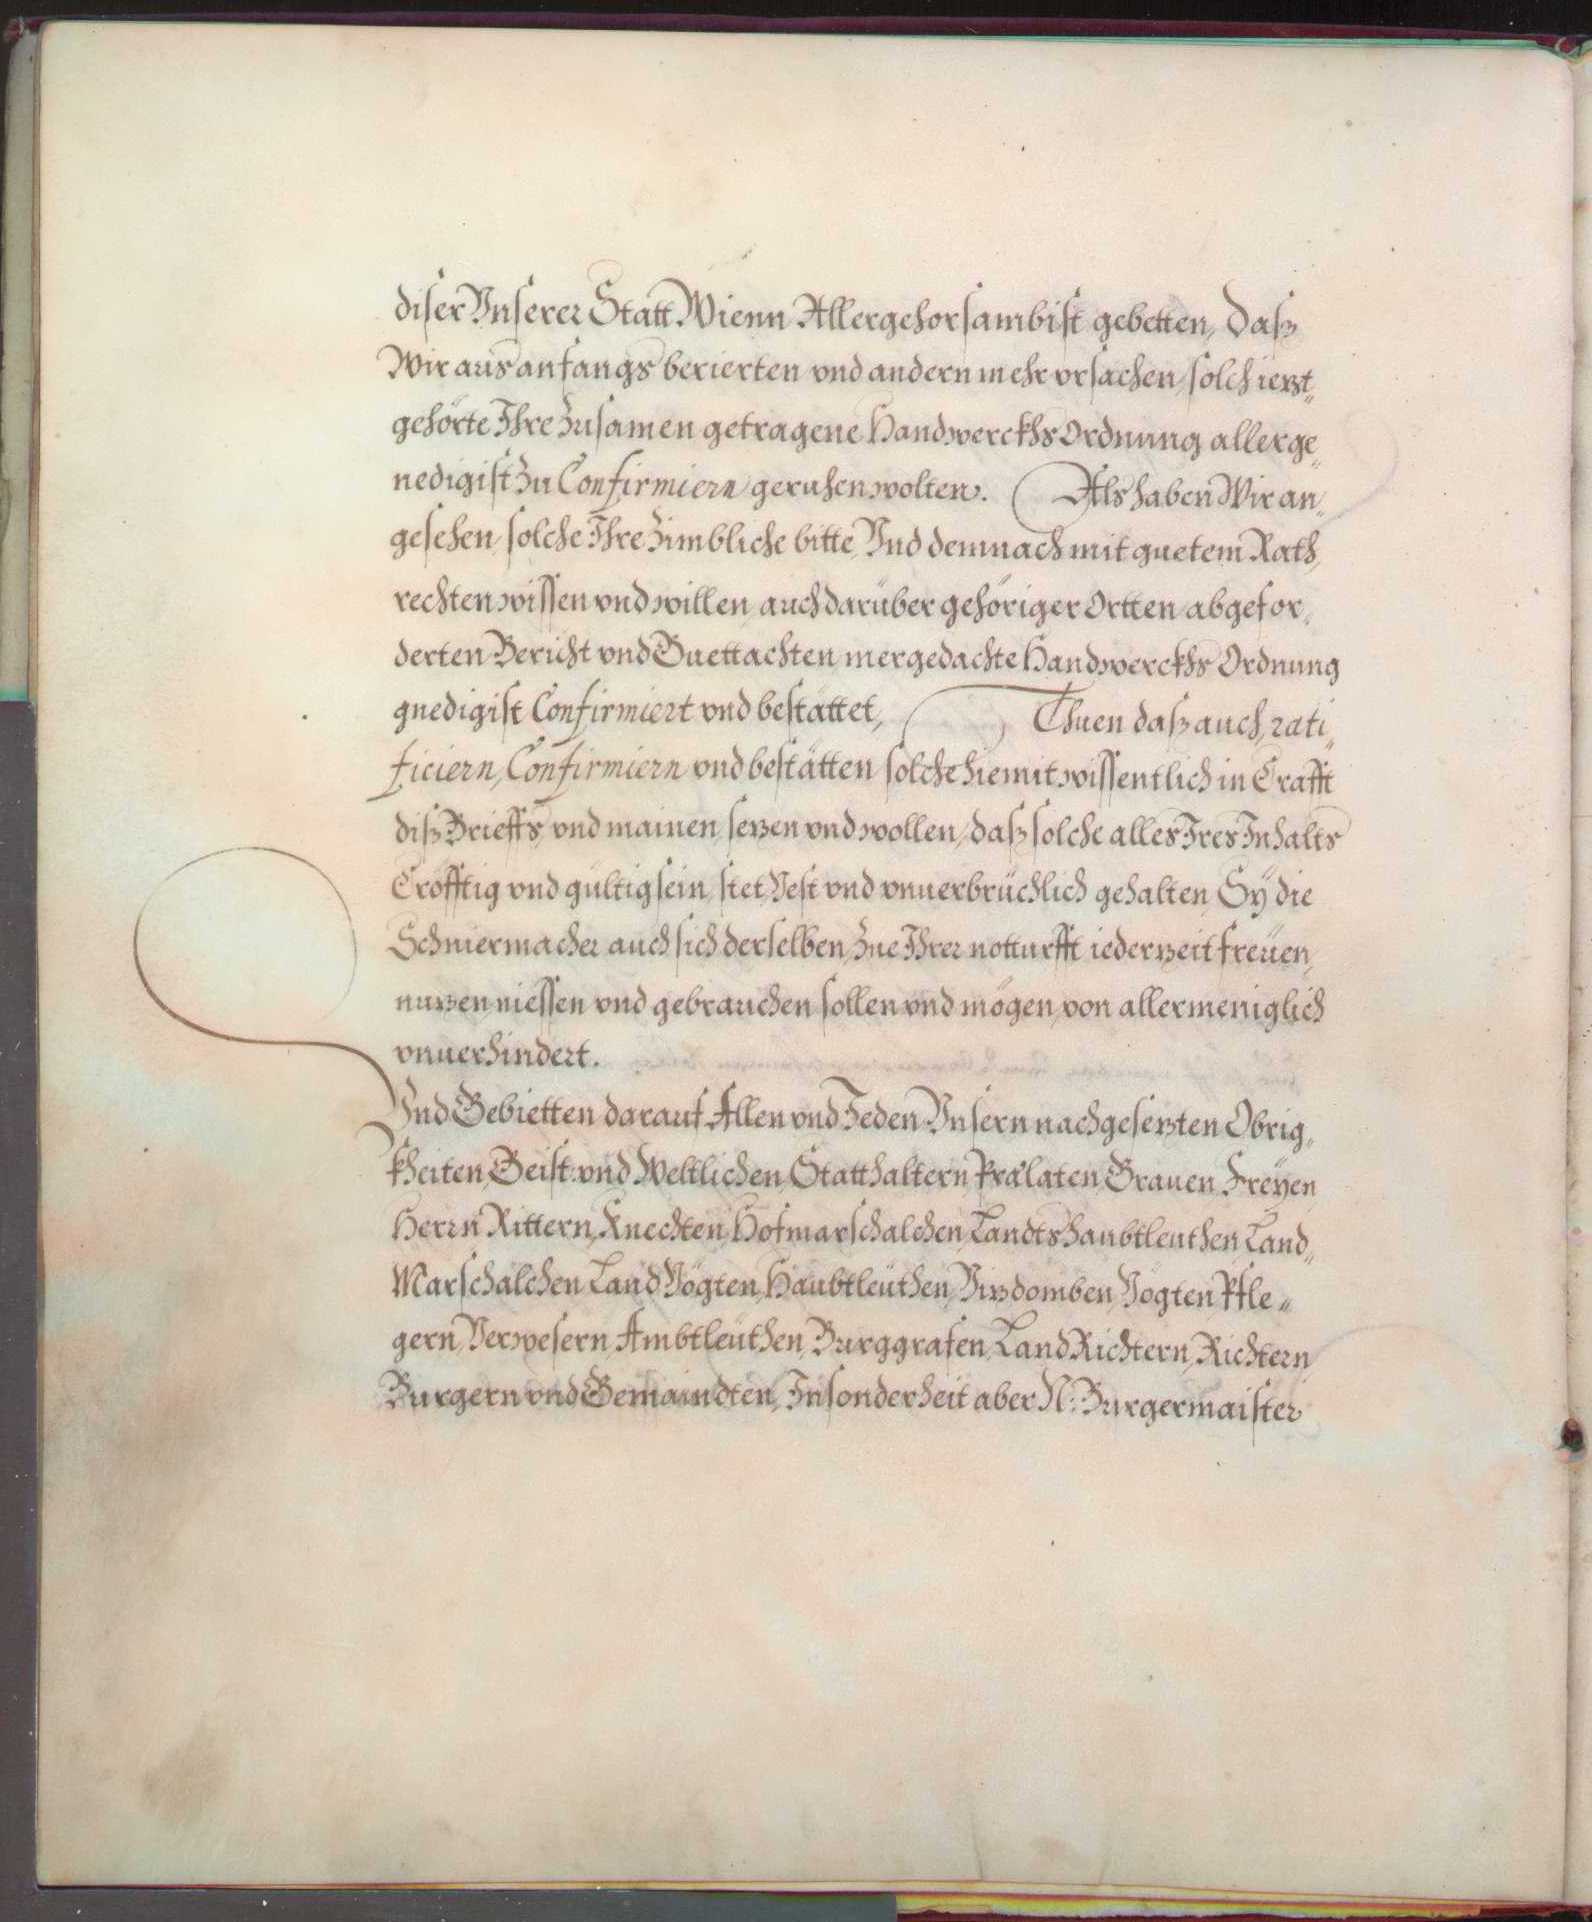 diser Vnserer Statt Wienn Allergehorsambist gebetten, Daß
Wir aus anfangs berierten vnd andern mehr vrsachen, solch ierzt„
gehörte Ihre Zusamen getragene Handwerckhs Ordnung allerge„
nedigist Zu Confirmiern geruhen wolten. Als haben Wir an„
gesehen, solche Ihre Zimbliche bitte, Vnd demnach mit guetem Rath,
rechten wissen vnd willen, auch darüber gehöriger Ortten abgefor„
derten Bericht vnd Guettachten mergedachte Handwerckhs Ordnung
gnedigist Confirmiert vnd bestättet, Thuen daß auch, rati„
ficiern, Confirmiern vnd bestätten solche hiemit wissentlich in Crafft
diß Brieffs, vnd mainen, sezen vnd wollen, daß solche alles Ires Inhalts
Cröfftig vnd gültig sein, stet, Vest vnd vnuerbrüchlich gehalten, Sÿ die
Schniermacher auch sich derselben, Zue Ihrer notturfft iederzeit freüen,
nuzen, niessen vnd gebrauchen sollen vnd mögen, von allermeniglich
vnuerhindert.
Vnd Gebietten darauf Allen vnd Jeden Vnsern nachgesezten Obrig„
kheiten, Geist: vnd Weltlichen, Statthaltern, Prælaten, Grauen, Freÿen,
Herrn, Rittern, Knechten, Hofmarschalchen, Landtshaubtleuthen, Land„
Marschalchen, Land Vögten, Haubtleüthen, Vizdomben, Vögten, Pfle„
gern, Verwesern, Ambtleüthen, Burggrafen, Land Richtern, Richtern,
Burgern vnd Gemaindten, Insonderheit aber N: Burgermaister